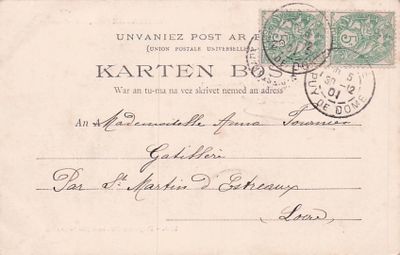 UNVANIEZ POST AR
(UNION POSTALE UNIVERSELLE)
KARTEN POST
War an tu-ma na vez skrivet nemed an adress
An Mademoiselle Anna Fournier
Gatillère
Par St Martin d'Estreaux
Loire
5
5
5
30-12
01
PUY DE DOME